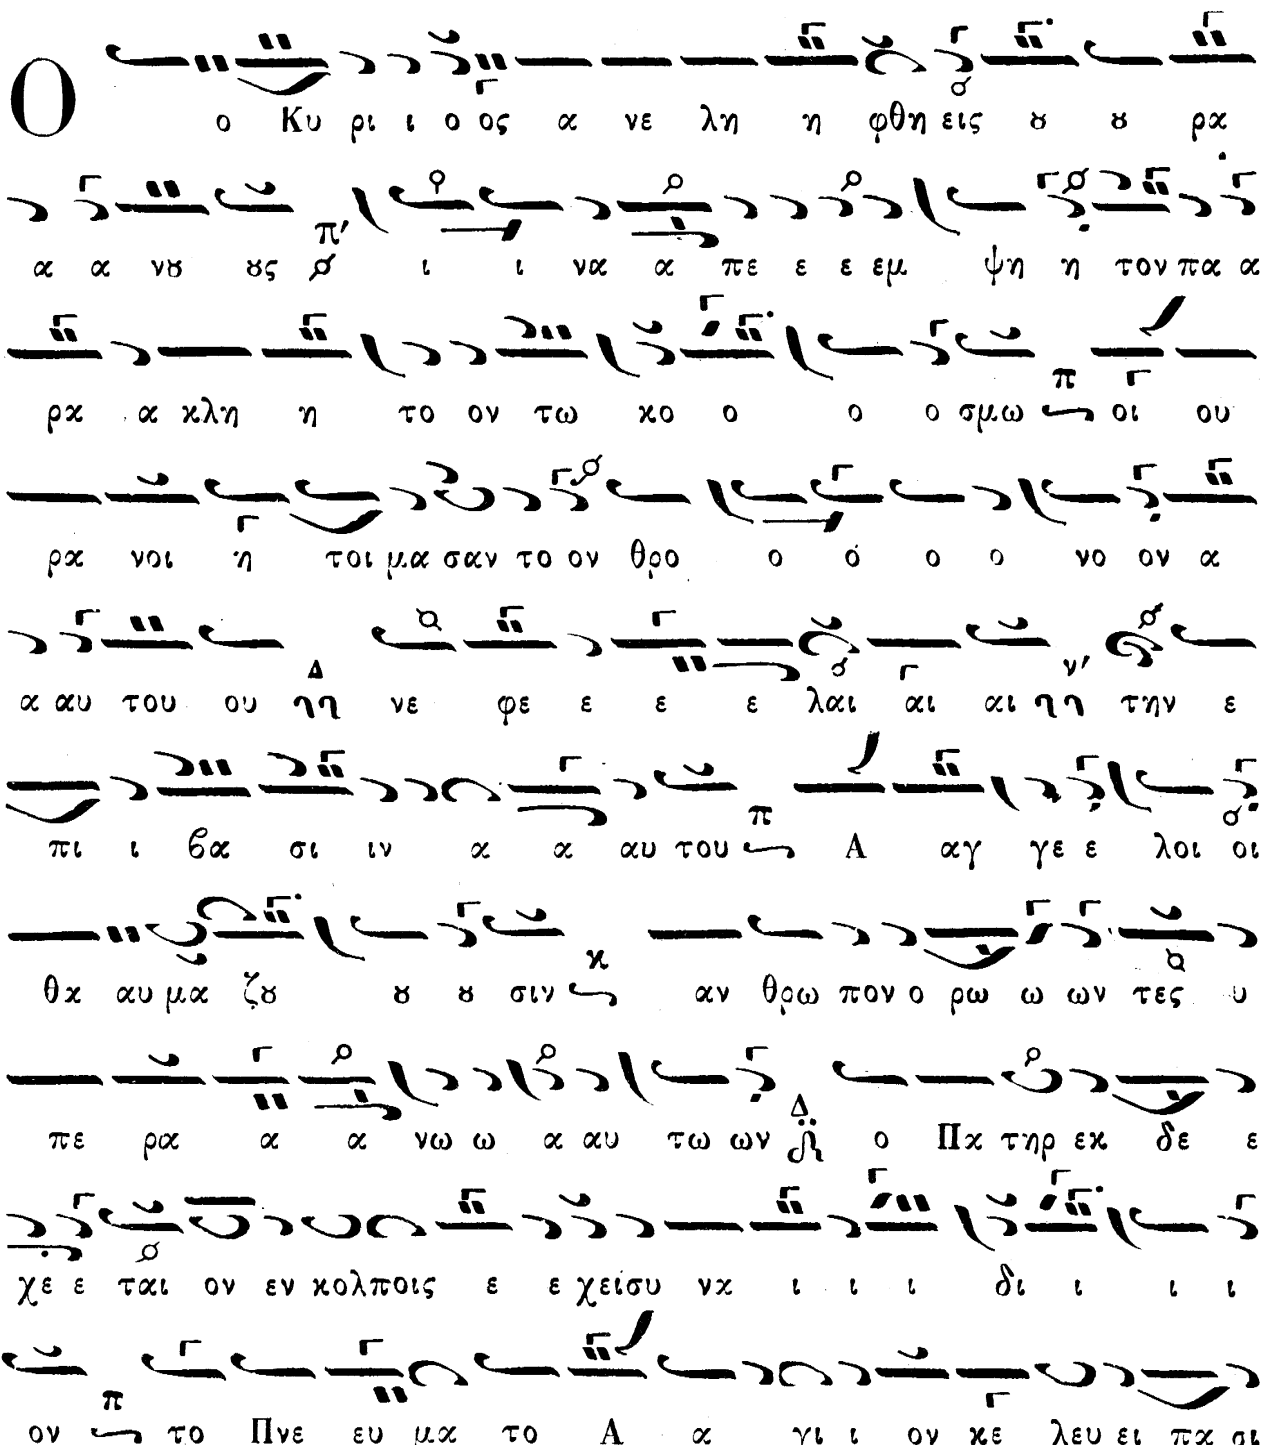 Ο ο Κυ ρι ι ο ος α νε λη η φθη εις ȣ ȣ ρα
α α νȣ ȣς π′ ι ι να α πε ε ε εμ ψη η τον πα α
ρα α κλη η το ον τω κο ο ο ο σμω π οι ου
ρα νοι η τοι μα σαν το ον θρο ο ο ο ο νο ον α
α αυ του ου Δ νε φε ε ε ε λαι αι αι ν′ την ε
πι ι ϐα σι ιν α α αυ του π Α αγ γε ε λοι οι
θα αυ μα ζȣ ȣ ȣ σιν κ αν θρω πον ο ρω ω ων τες υ
πε ρα α α νω ω α αυ τω ων Δ ο Πα τηρ εκ δε ε
χε ε ται ον εν κολποις ε ε χει συ να ι ι ι δι ι ι ι
ον π το Πνε ευ μα το Α α γι ι ον κε λευ ει πα σι